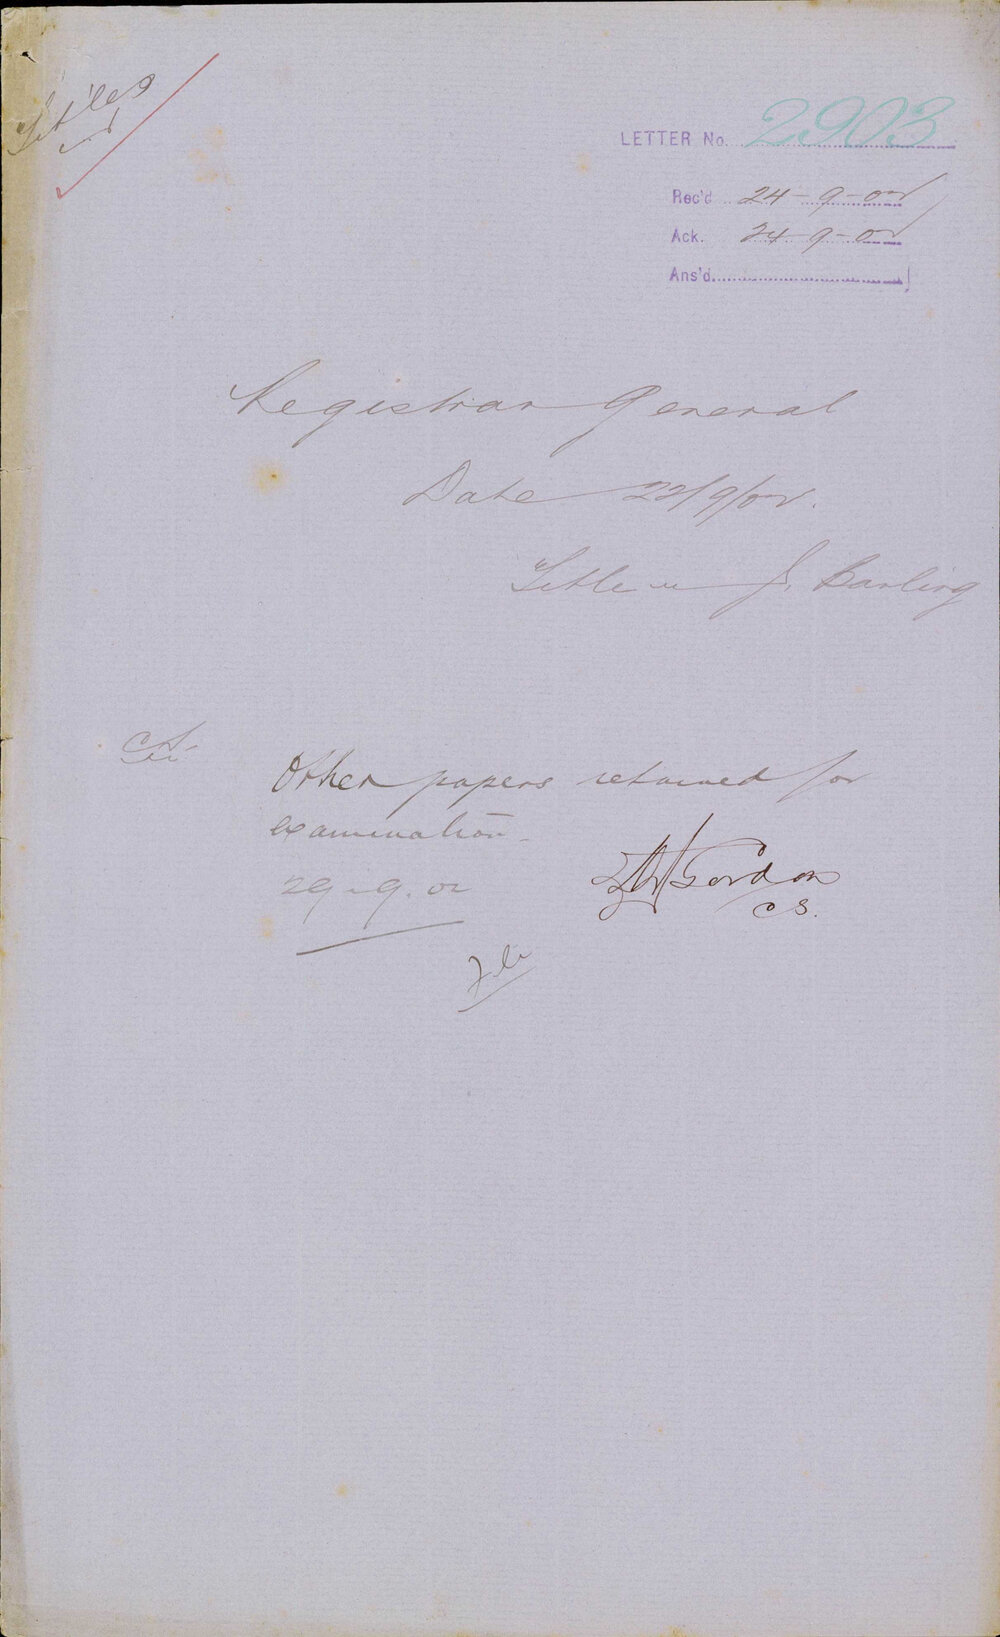 Titles
LETTER No. 2903
Rec'd 24-9-02
Ack. 24-9-02
Ans'd.
Registrar General
Date 22/9/02.
Title J. Barling
Other papers returned for
examination
29-9-02
Gordon
C S.
File